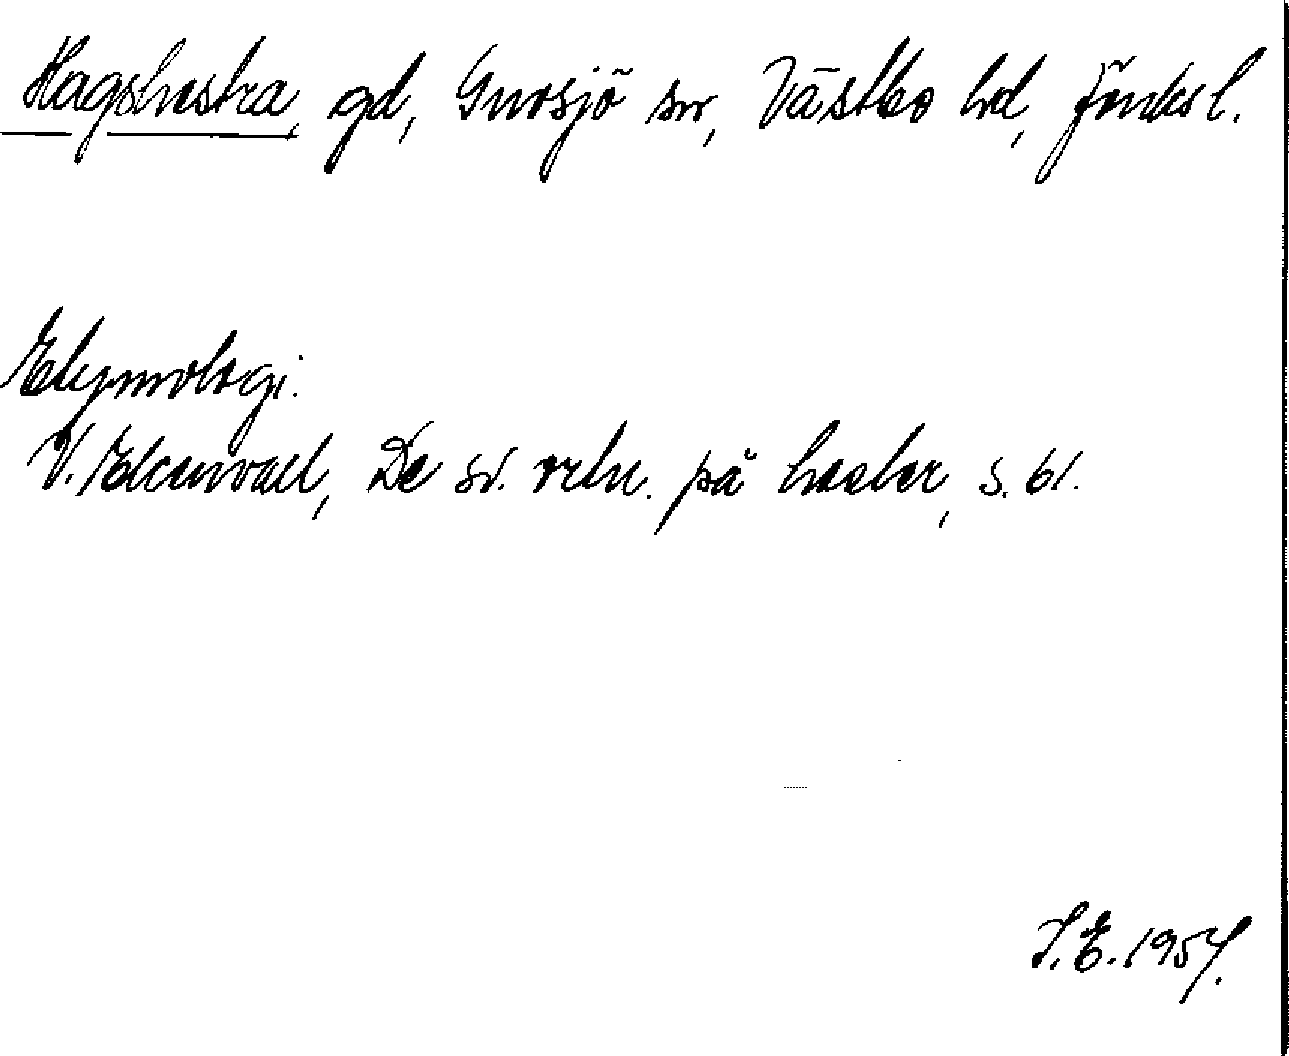 Hagshestra, gd, Gnosjö sn, Västbo hd, Jönk. l.
Etymologi.
V. Ekenvall, De sv. ortn. på hester, s. 61.
I. E. 1957.